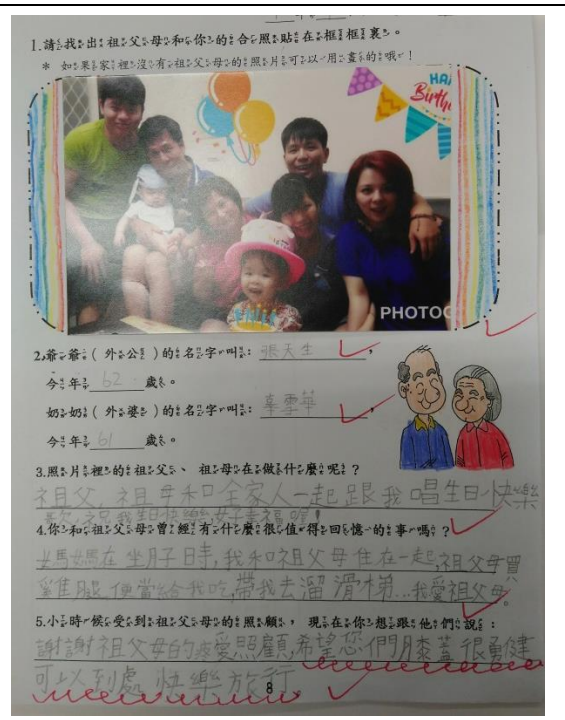 1.請找出祖父母和你的合照貼在框框裏。
* 如果家裡沒有祖父母的照片可以用畫的哦!
HA
Birth
PHOTOG
2.爺爺(外公)的名字叫:張天生,
今年62歲。
奶奶(外婆)的名字叫:辜雪華,
今年61歲。
3.照片裡的祖父、祖母在做什麼呢?
祖父,祖母和全家人一起跟我唱生日快樂
歌,祝我生日快樂,好幸福喔!
4.你和祖父母曾經有什麼很值得回憶的事嗎?
媽媽在坐月子時,我和祖父母住在一起,祖父母買
雞腿便當給我吃,帶我去溜滑梯...我愛祖父母。
5.小時候受到祖父母的照顧,現在你想跟他們說:
謝謝祖父母的疼愛照顧,希望您們膝蓋很勇健
可以到處快樂旅行
8